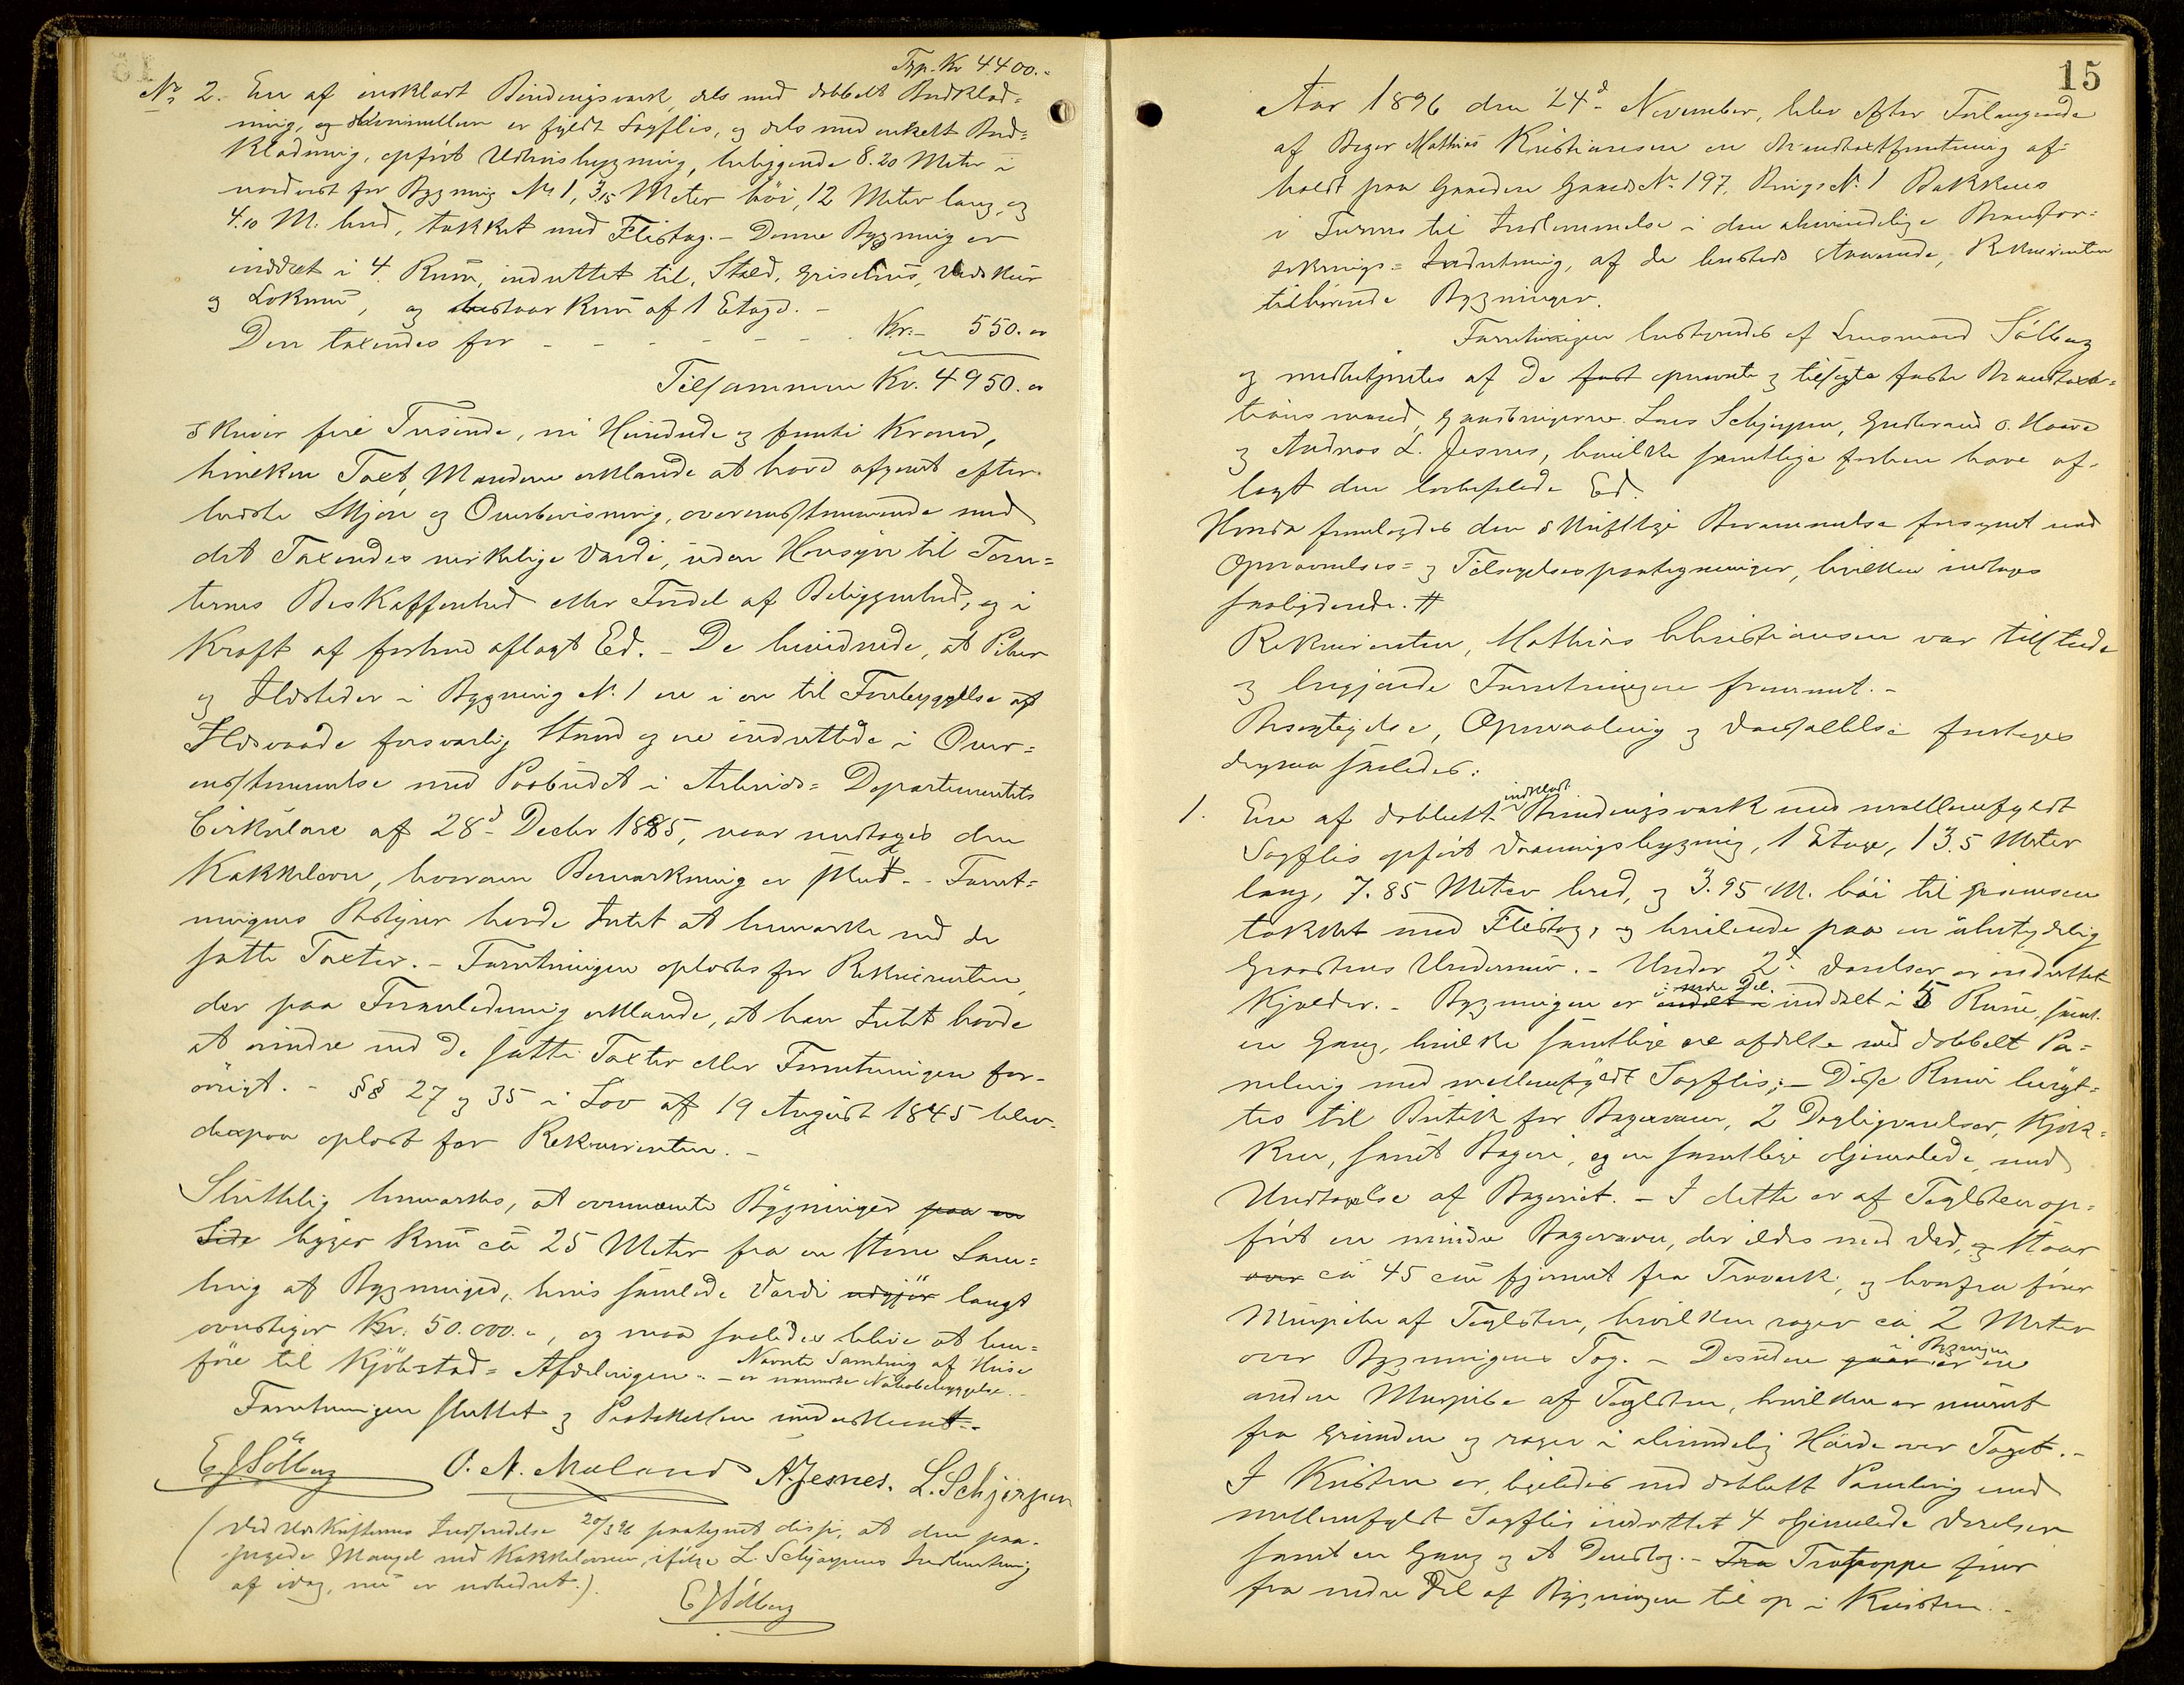 Trp. Kr 4400.-
No 2. En af indklædt Bindingsværk, dels med dobbelt Bordklæd=
ning, og derimellem er fyldt Sagflis, og dels med enkelt Bord=
klædning, opført Udhusbygning, beliggende 8.20 Meter i
nordvest for Bygning No 1, 3.15 Meter høi, 12 Meter lang, og
4.10 M. bred, tækket med Flistag. - Denne Bygning er
inddelt i 4 Rum, indrettet til, Stald, Grisehus, Vedskur
og Lokum, og bestaar kun af 1 Etage. -
Den taxeredes for - - - - - - - Kr. - 550. "
Tilsammen Kr. 4950. "
skriver fire Tusinde, ni Hundrede og femti Kroner,
hvilken Taxt, Mændene erklærede at have afgivet efter
bedste Skjøn og Overbevisning, overensstemmende med
det Taxeredes virkelige Værdi, uden Hensyn til Tom=
ternes Beskaffenhed eller Fordel af Beliggenhed, og i
Kraft af forhen aflagt Ed. - De bevidnede, at Piber
og Ildsteder i Bygning No. 1 ere i en til Forebyggelse af
Ildsvaade forsvarlig Stand og ere indrettede i Over=
ensstemmelse med Paabudet i Arbeids= Departementets
Cirkulære af 28d- Decbr 1885, naar undtages den
Kakkelovn, hvorom Bemærkning er skeet. - Forret=
ningens Bestyrer havde Intet at bemærke ved de
satte Taxter. - Forretningen oplæstes for Rekvirenten,
der paa Foranledning erklærede, at han Intet havde
at erindre ved de satte Taxter eller Forretningen for=
øvrigt. - §§ 27 og 35 i Lov af 19 August 1845 blev
derpaa oplæst for Rekvirenten. -
Sluttelig bemærkes, at ovennævnte Bygninger paa en
Side ligger kun ca 25 Meter fra en større Sam=
ling af Bygninger, hvis samlede Værdi udgjør langt
overstiger Kr. 50.000. ", og maa saaledes blive at hen=
føre til Kjøbstad= Afdelingen. - Nævnte Samling af Huse
er nærmeste Nabobebyggelse. -
Forretningen sluttet og Protokollen underskrevet. -
E J Sølberg O. N. Moland A. Jesnes. L. Schjerpen
(Ved Udskriftens Indsendelse 20/3 96 paategnet disse, at den paa-
pegede Mangel ved Kakkelovnen, ifølge L. Schjerpens Indberetning
af idag, nu er udbedret.)
E J Sølberg
15
Aar 1896 den 24d- November, blev efter Forlangende
af Bager Mathias Kristiansen en Brandtaxtforretning af=
holdt paa Gaarden Gaards No. 197, Brugs No. 1 Bakkens
i til Indlemmelse i den almindelige Brandfor=
sikrings= Indretning, af de herstedes staaende, Rekvirenten
tilhørende Bygninger.
Forretningen bestyredes af Lensmand Sølberg
og medbetjentes af de fast opnævnte og tilsagte faste Brandtaxa=
tionsmænd, Gaardbrugerne Lars Schjerpen, Gudbrand O. Haave
og Andreas L. Jesnes, hvilke samtlige forhen have af=
lagt den lovbefalede Ed.
Herda fremlagdes den skriftlige Berammelse forsynet med
Opnævnelses= og Tilsigelsespaategninger, hvilken indtages
saalydende. #
Rekvirenten, Mathias Christiansen var tilstede
og begjærede Forretningen fremmet. -
Besigtigelse, Opmaaling og Værdsættelse foretoges
derpaa saaledes:
1. En af dobbelt indklædt Bindingsværk med mellemfyldt
Sagflis opført Vaaningsbygning, 1 Etage, 13.5 Meter
lang, 7.85 Meter bred, og 3.95 M. høi til gesimsen
tækket med Flistag, og hvilende paa en ubetydelig
Graastens Undermur. - Under 2d. Værelser er indrettet
Kjelder. - Bygningen er i nedre Del. inddelt i inddelt i 5 Rum, samt
en Gang, hvilke samtlige ere afdelte med dobbelt Pa=
neling med mellemfyldt Sagflis; - Disse Rum benyt=
tes til Butik for Bagervarer, 2 Dagligværelser, Kjøk=
ken, samt Bageri, og ere samtlige oljemalede, med
Undtagelse af Bageriet. - I dette er af Teglsten op=
ført en mindre Bagerovn, der ildes med Ved, og staar
over ca 45 cm fjernet fra Træværk, og hvorfra fører
Murpibe af Teglsten, hvilken rager ca 2 Meter
over Bygningens Tag. - Desuden gaar er i Bygningen en
anden Murpibe af Teglsten, hvilken er muret
fra Grunden og rager i almindelig Høide over Taget. -
I Kvisten er, ligeledes ved dobbelt Paneling med
mellemfyldt Sagflis indrettet 4 oljemalede Værelser
samt en Gang og et . - Fra Trætrappe fører
fra nedre Del af Bygningen til op i Kvisten. -